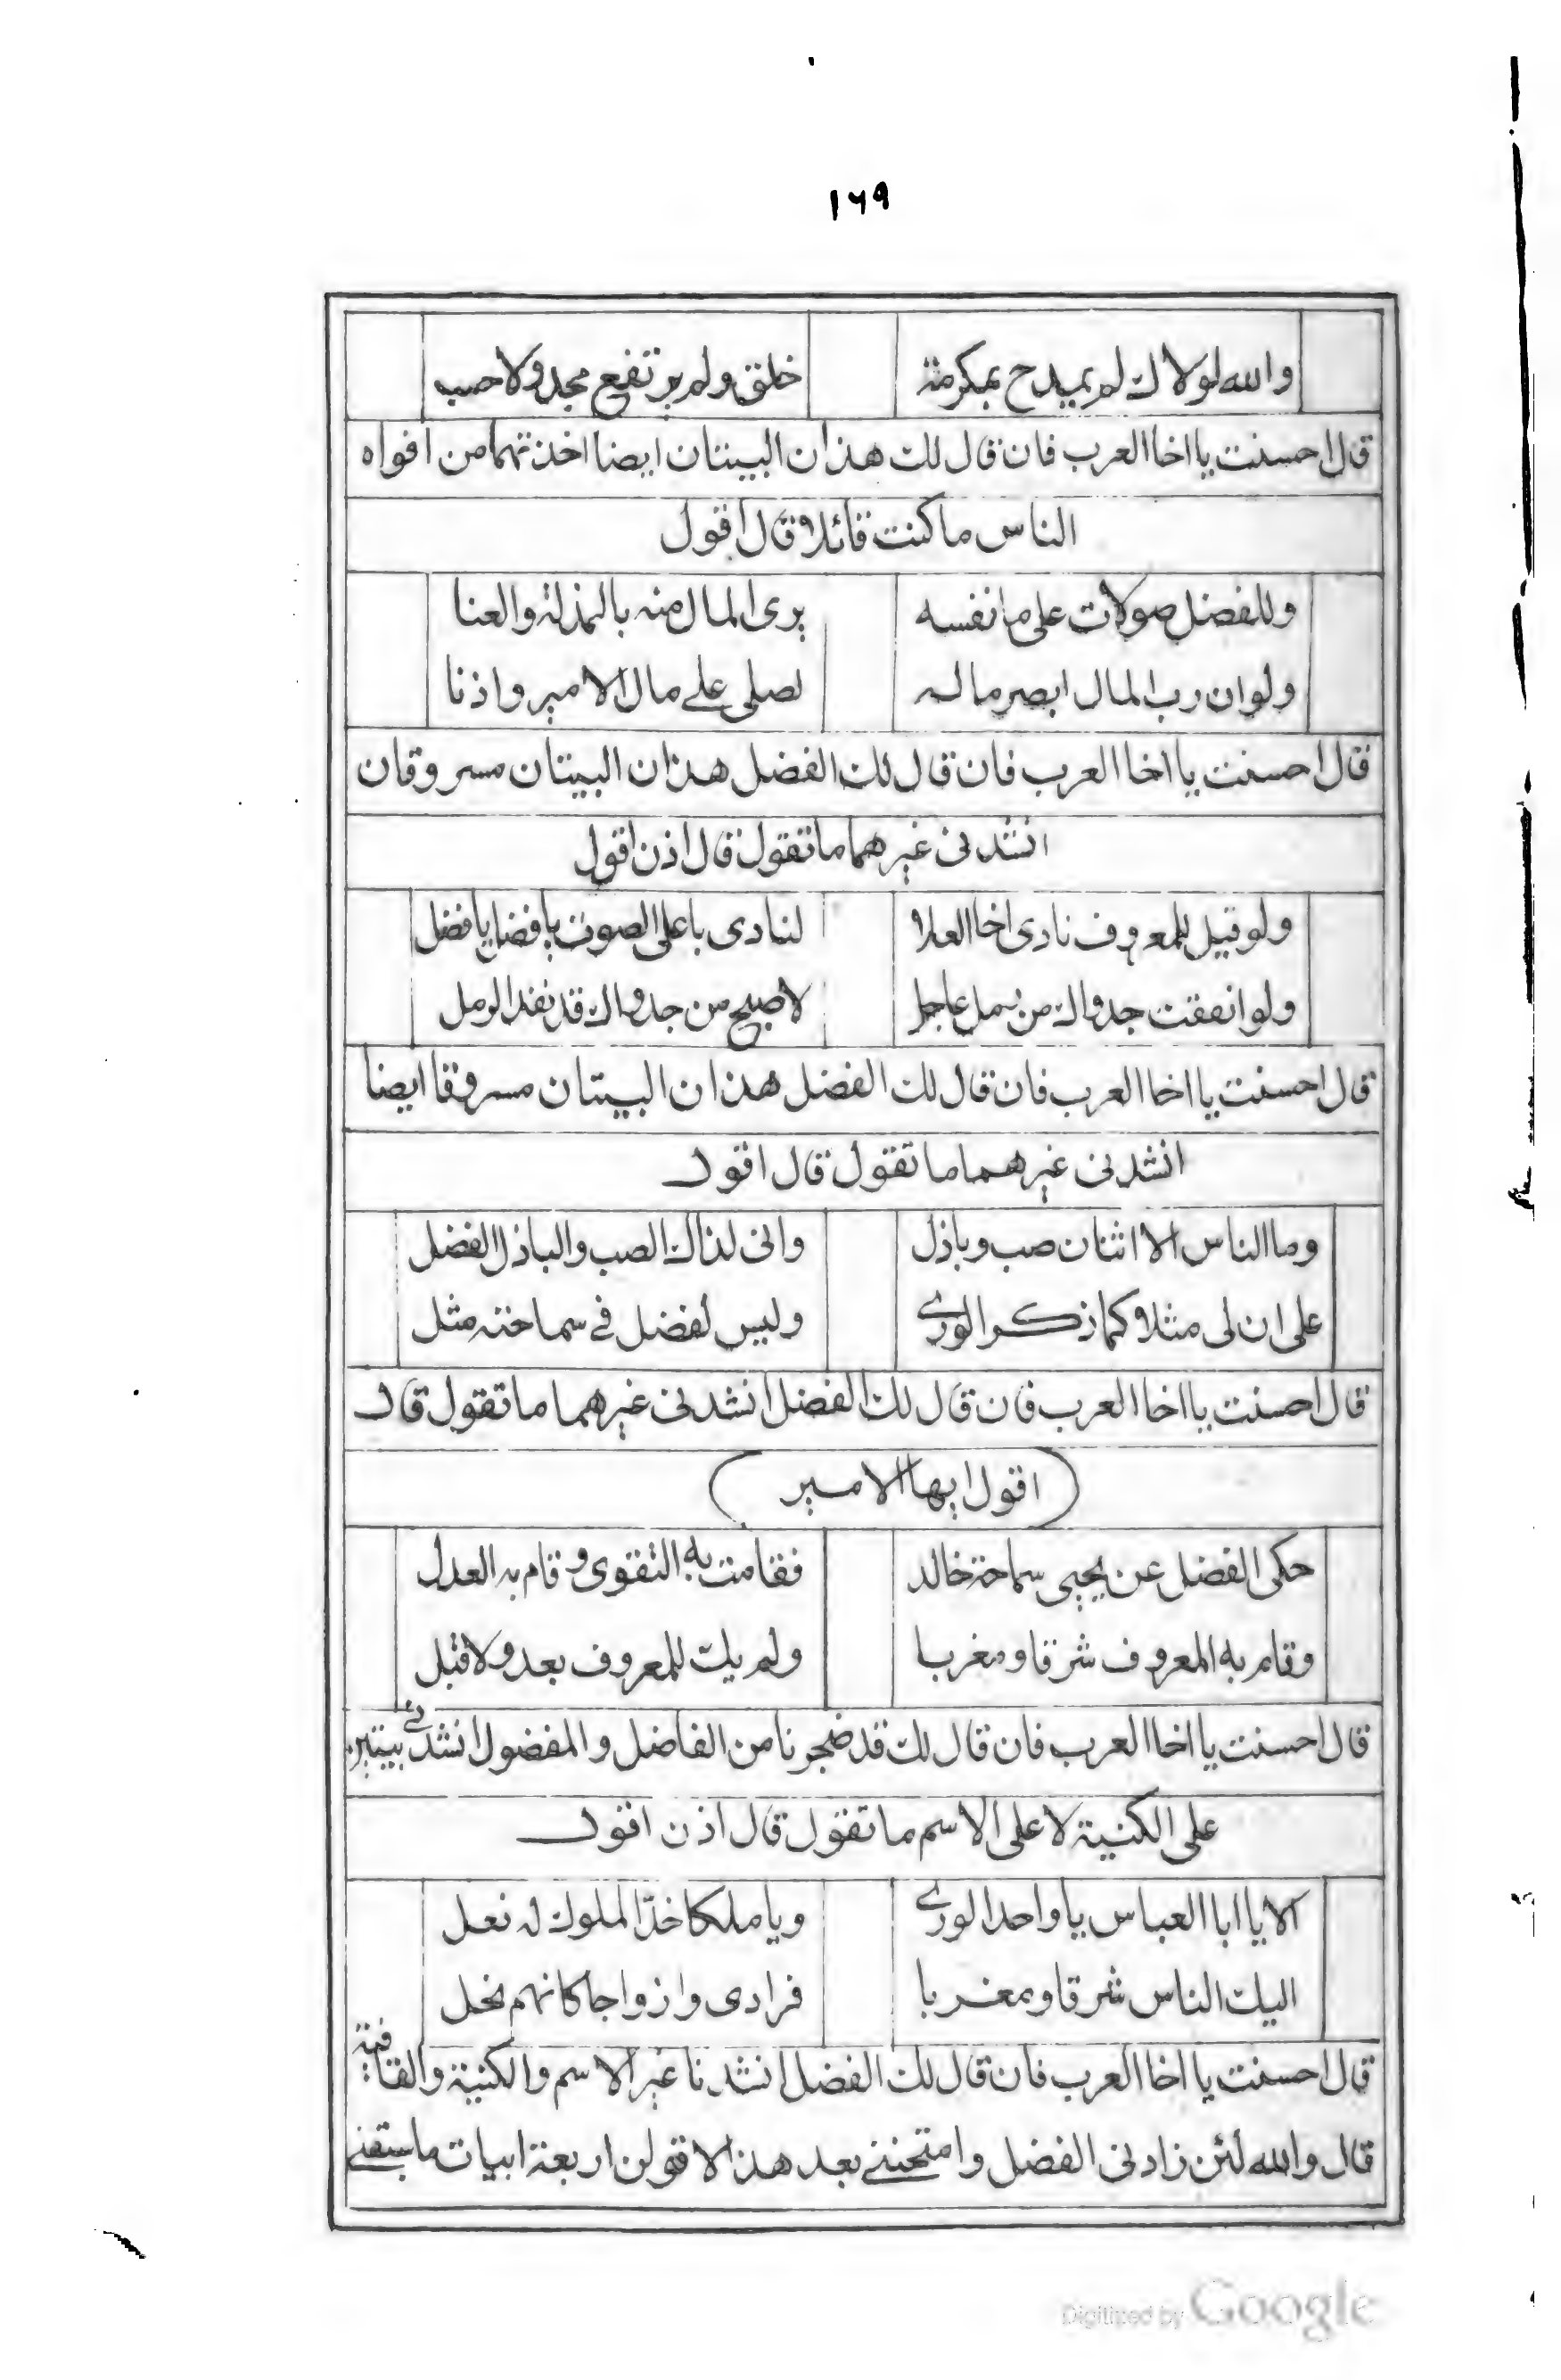 ١٦٩
والله لولاك لم يمدح بمكرمة خلق ولم يرتفع مجد ولا حسب
قال احسنت يا اخا العرب فان قال لك هذان البيتان ايضا اخذتهما من افواه
الناس ما كنت قائلا قال اقول
وللفضل صولات على ما نفسه يرى المال منه بالمذلة والعنا
ولو ان رب المال ابصر ماله لصلى على مال الامير واذنا
فقال احسنت يا اخا العرب فان قال لك الفضل هذان البيتان مسروقان
انشدنى غيرهما ما تقول قال اذن اقول
ولو قيل للمعروف نادى اخا العلا لنادى باعلى الصوت يا فضل يا فضل
ولو انفقت جدواك من رمل عاجل لاصبح من جدواك قد نفد الرمل
قال احسنت يا اخا العرب فان قال لك الفضل هذان البيتان مسروقا ايضا
انشدنى غيرهما ما تقول قال اقول
وما الناس الا اثنان صب وباذل وانى لذاك الصب والباذل الفضل
على ان لى مثلا كما ذكر الورى وليس لفضل فى سماحته مثل
قال احسنت يا اخا العرب فان قال لك الفضل انشدنى غيرهما ما تقول قال
(اقول ايها الامير)
حكى الفضل عن يحيى سماحة خالد فقامت به التقوى وقام به العدل
وقام به المعروف شرقا ومغربا ولم يك للمعروف بعد ولا قبل
قال احسنت يا اخا العرب فان قال لك قد ضجرنا من الفاضل والمفضول انشدنى بيتين
على الكنية لا على الاسم ما تقول قال اذن اقول
الا يا ابا العباس يا واحد الورى ويا ملكا خد الملوك له نعل
اليك الناس شرقا ومغربا فرادى وازواجا كانهم نحل
قال احسنت يا اخا العرب فان قال لك الفضل انشدنا غير الاسم والكنية والقافية
قال والله لئن زادنى الفضل وامتحننى بعد هذا لاقولن اربعة ابيات ما سبقنى
Digitized by Google